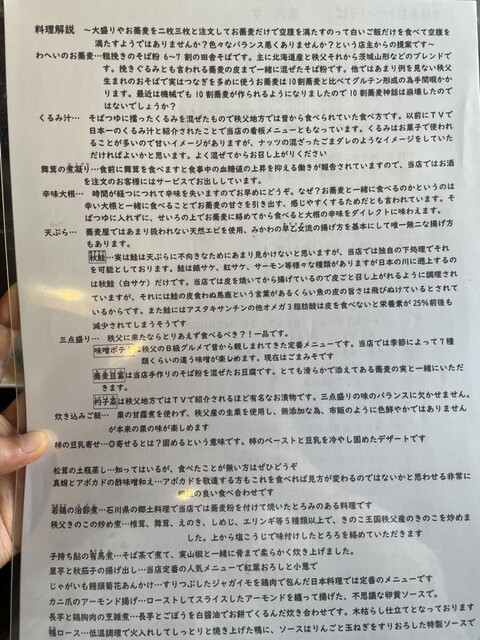 料理解説　～大盛りやお蕎麦を二枚三枚と注文してお蕎麦だけで空腹を満たすのって白いご飯だけを食べて空腹を
満たすようではありませんか？色々なバランス悪くありませんか？という店主からの提案です～
わへいのお蕎麦…粗挽きのそば粉 6～7 割の田舎そばです。主に北海道産と秩父それから茨城山形などのブレンドで
す。挽きぐるみとも言われる蕎麦の皮まで一緒に混ぜたそば粉です。他ではあまり例を見ない秩父
生まれのおそばで実はつなぎを多めに使うお蕎麦は 10 割蕎麦と比べてグルテン形成の為手間暇かか
ります。最近は機械でも 10 割蕎麦が作られるようになりましたので 10 割蕎麦神話は崩壊したので
はないでしょうか？
くるみ汁…　そばつゆに擂ったくるみを混ぜたもので秩父地方では昔から食べられていた食べ方です。以前にＴＶで
日本一のくるみ汁と紹介されたことで当店の看板メニューともなっています。くるみはお菓子で使われ
ることが多いので甘いイメージがありますが、ナッツの混ざったごまダレのようなイメージをしていた
だければよいかと思います。よく混ぜてからお召し上がりください
舞茸の煮凝り…食前に舞茸を食べますと食事中の血糖値の上昇を抑える働きが報告されていますので、当店ではお酒
を注文のお客様にはサービスでお出ししています。
辛味大根…　時間が経つにつれて辛味を失いますのでお早めにどうぞ。なぜ？お蕎麦と一緒に食べるのかというのは
辛い大根と一緒に食べることでお蕎麦の甘さを引き出す、感じやすくするためだとも言われています。そ
ばつゆに入れずに、せいろの上でお蕎麦に絡めてから食べると大根の辛味をダイレクトに味わえます。
天ぷら…　蕎麦屋ではあまり扱われない天然エビを使用、みかわの早乙女流の揚げ方を基本にして唯一無二な揚げ方
もあります。
秋鮭…実は鮭は天ぷらに不向きなためにあまり見かけないと思いますが、当店では独自の下処理でそれ
を可能としております。鮭は銀サケ、紅サケ、サーモン等様々な種類がありますが日本の川に遡上するの
は秋鮭（白サケ）だけです。当店では皮を焼いてから揚げているので皮ごと召し上がれるように調理され
ていますが、それには鮭の皮食わぬ馬鹿という言葉があるくらい魚の皮の旨さは飛びぬけているとされて
いるからです。また鮭にはアスタキサンチンの他オメガ３脂肪酸は皮を食べないと栄養素が 25％前後も
減少されてしまうそうです
三点盛り…　秩父に来たならとりあえず食べるべき？！一品です。
味噌ポテトは秩父のＢ級グルメで昔から親しまれてきた定番メニューです。当店では季節によって７種
類くらいの違う味噌が楽しめます。現在はごまみそです
蕎麦豆富は当店手作りのそば粉を混ぜたお豆腐です。とても滑らかで添えてある蕎麦の実と一緒にいただ
きます。
杓子菜は秩父地方ではＴＶで紹介されるほど有名なお漬物です。三点盛りの味のバランスに欠かせません。
炊き込みご飯…　栗の甘露煮を使わず、秩父産の生栗を使用し、無添加な為、市販のように色鮮やかではありません
が本来の栗の味が楽しめます
柿の豆乳寄せ…◎寄せるとは？固めるという意味です。柿のペーストと豆乳を冷やし固めたデザートです
松茸の土瓶蒸し…知ってはいるが、食べたことが無い方はぜひどうぞ
真蛸とアボカドの酢味噌和え…アボカドを敬遠する方もこれを食べれば見方が変わるのではないかと思わせる非常に
の良い食べ合わせです
若鶏の治部煮…石川県の郷土料理で当店では蕎麦粉を付けて焼いたとろみのある料理です
秩父きのこの炒め煮…椎茸、舞茸、えのき、しめじ、エリンギ等５種類以上で、きのこ王国秩父産のきのこを炒め
した。上から塩こうじで味付けしたとろろを絡めていただきます
子持ち鮎の有馬煮…そば茶で煮て、実山椒と一緒に骨まで柔らかく炊き上げました。
里芋と秋茄子の揚げ出し…当店定番の人気メニューで紅葉おろしと小葱で
じゃがいも饅頭菊花あんかけ…すりつぶしたジャガイモを鶏肉で包んだ日本料理では定番のメニューです
カニ爪のアーモンド揚げ…ローストしてスライスしたアーモンドを纏って揚げた、不思議な卵黄ソースで。
長芋と鶏胸肉の烹雑煮…長芋とごぼうを白醤油でお餅でくるんだ炊き合わせです。木枯らし仕立てとなっております
鴨ロース…低温調理で火入れしてしっとりと焼き上げた鴨に、ソースはりんごと玉ねぎをすりおろした特製ソースで